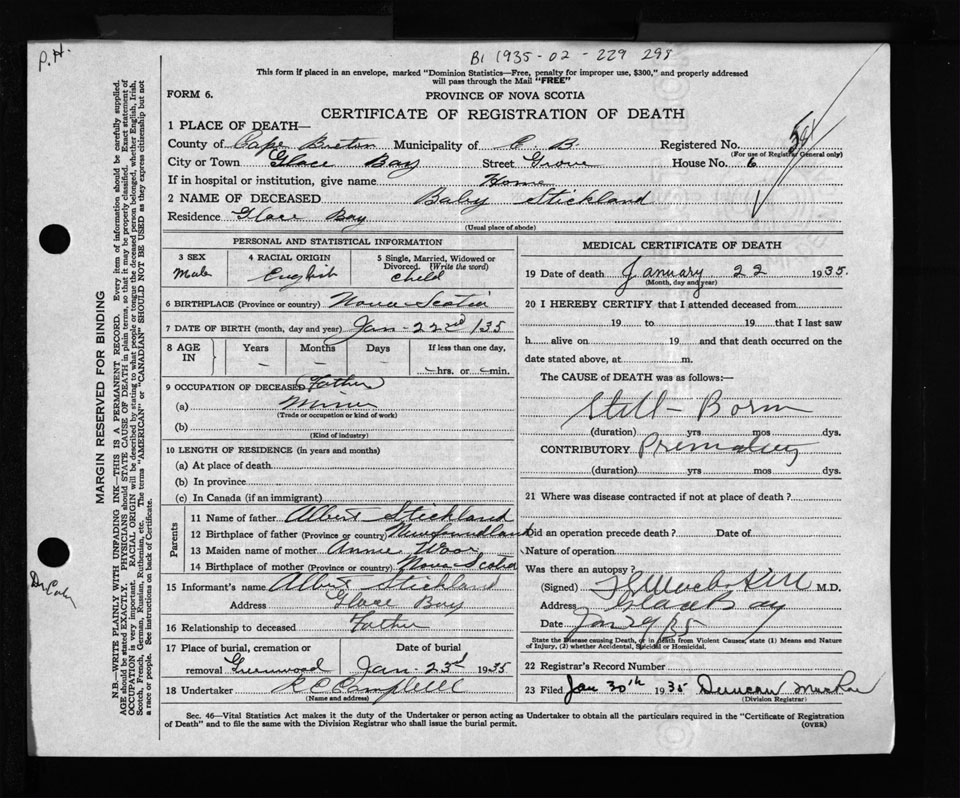 P.H.
B1 1935-02-229 298
This form if placed in an envelope, marked "Dominion Statistics—Free, penalty for improper use, $300," and properly addressed
will pass through the Mail "FREE"
FORM 6.
PROVINCE OF NOVA SCOTIA
CERTIFICATE OF REGISTRATION OF DEATH
1 PLACE OF DEATH—
County of Cape Breton Municipality of C. B. Registered No.
(For use of Registrar General only)
City or Town Glace Bay Street Grove House No. 6
If in hospital or institution, give name Home
2 NAME OF DECEASED Baby Stickland
Residence Glace Bay
(Usual place of abode)
PERSONAL AND STATISTICAL INFORMATION
3 SEX
Male
4 RACIAL ORIGIN
English
5 Single, Married, Widowed or
Divorced. (Write the word)
child
6 BIRTHPLACE (Province or country) Nova Scotia
7 DATE OF BIRTH (month, day and year) Jan-22nd/35
8 AGE
IN
Years
Months
Days
If less than one day,
hrs. or min.
9 OCCUPATION OF DECEASED Father
(a) Miner
(Trade or occupation or kind of work)
(b)
(Kind of industry)
10 LENGTH OF RESIDENCE (in years and months)
(a) At place of death
(b) In province
(c) In Canada (if an immigrant)
Parents
11 Name of father Albert Stickland
12 Birthplace of father (Province or country) Newfoundland
13 Maiden name of mother Annie
14 Birthplace of mother (Province or country) Nova Scotia
15 Informant's name Albert Stickland
Address Glace Bay
16 Relationship to deceased Father
17 Place of burial, cremation or
removal Greenwood
Date of burial
Jan-23rd 1935
18 Undertaker Campbell
(Name and address)
MEDICAL CERTIFICATE OF DEATH
19 Date of death January 22 1935.
(Month, day and year)
20 I HEREBY CERTIFY that I attended deceased from
19 to 19 that I last saw
h alive on 19 and that death occurred on the
date stated above, at m.
The CAUSE of DEATH was as follows:—
Still-Born
(duration) yrs mos dys.
CONTRIBUTORY
(duration) yrs mos dys.
21 Where was disease contracted if not at place of death?
Did an operation precede death? Date of
Nature of operation
Was there an autopsy?
(Signed) M.D.
Address Glace Bay
Date
State the Disease causing Death, or in death from Violent Causes, state (1) Means and Nature
of Injury, (2) whether Accidental, Suicidal or Homicidal.
22 Registrar's Record Number
23 Filed Jan 30th 1935 Duncan
(Division Registrar)
Sec. 46—Vital Statistics Act makes it the duty of the Undertaker or person acting as Undertaker to obtain all the particulars required in the "Certificate of Registration
of Death" and to file the same with the Division Registrar who shall issue the burial permit.
(OVER)
MARGIN RESERVED FOR BINDING
N.B.—WRITE PLAINLY WITH UNFADING INK—THIS IS A PERMANENT RECORD. Every item of information should be carefully supplied.
AGE should be stated EXACTLY. PHYSICIANS should STATE CAUSE OF DEATH in plain terms, so that it may be properly classified. Exact statement of
OCCUPATION is very important. RACIAL ORIGIN will be described by stating to what people or tongue the deceased person belonged, whether English, Irish,
Scotch, French, German, Russian, Ruthenian, etc. The terms "AMERICAN" or "CANADIAN" SHOULD NOT BE USED as they express citizenship but not
a race or people. See instructions on back of Certificate.